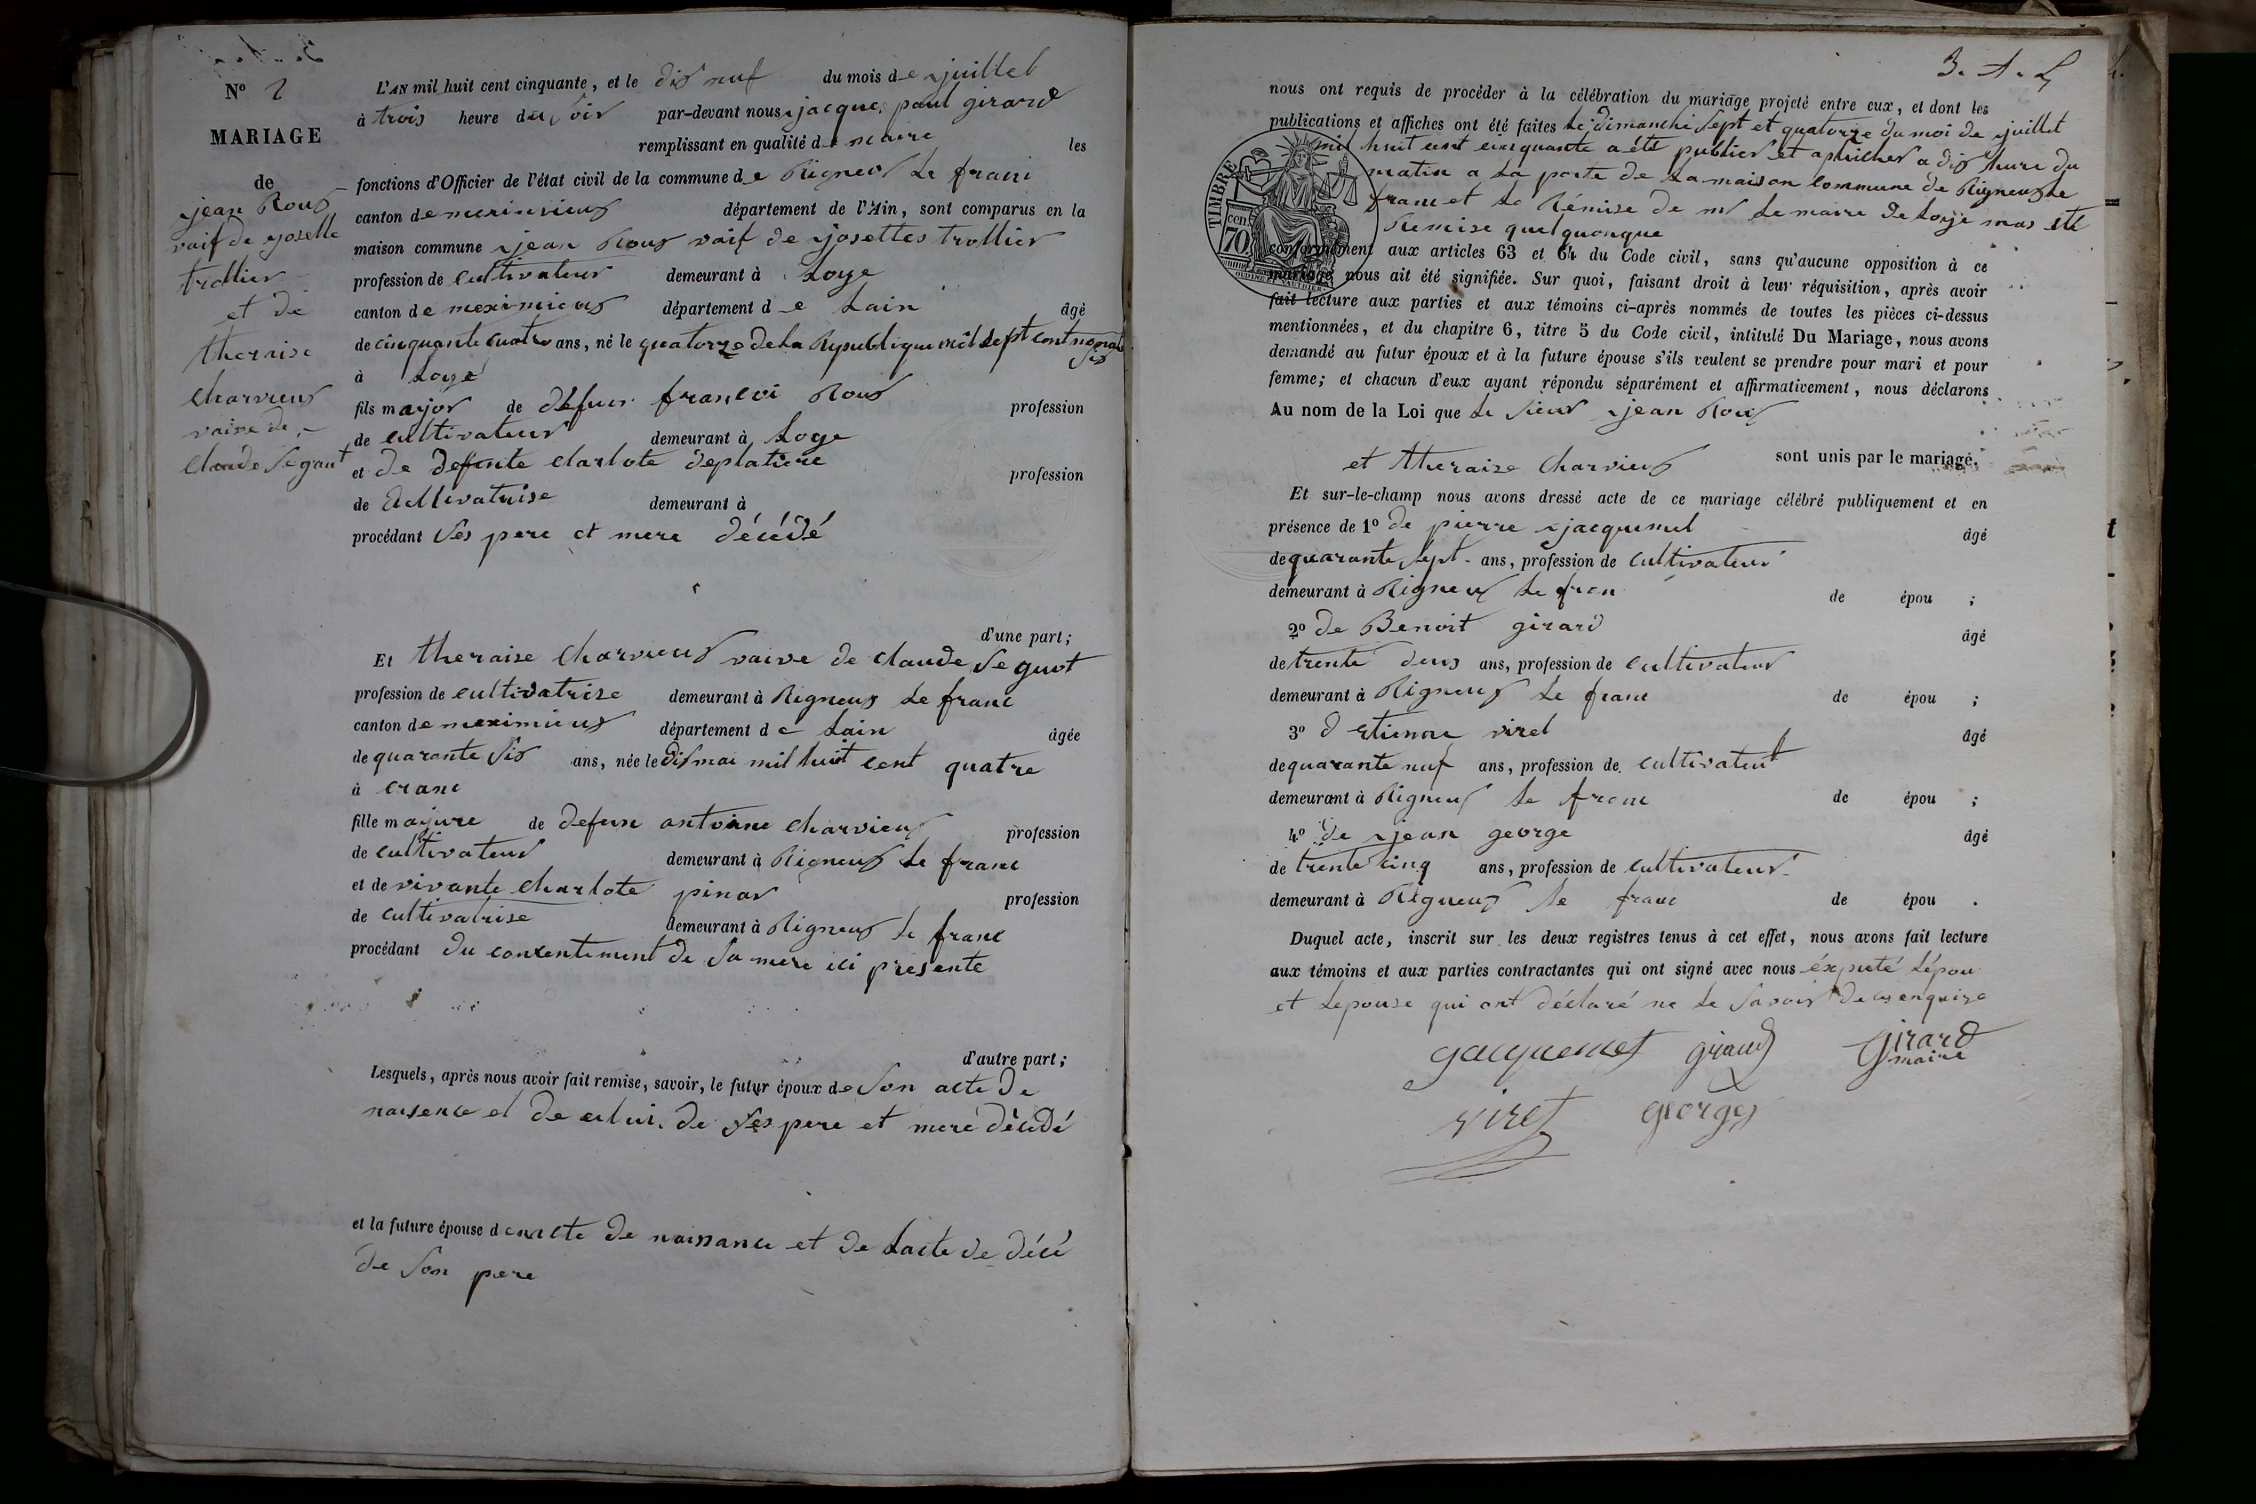 N° 2
MARIAGE
de
jean Roux
vaif de Josette
trollier
et de
theraise
Charvieux
vaive de
Claude Seguot
L'AN mil huit cent cinquante, et le dix neuf du mois de juillet
à trois heure du soir par-devant nous jacque paul girard
remplissant en qualité de maire les
fonctions d'Officier de l'état civil de la commune de Rigneux Le franc
canton de meximieux département de l'Ain, sont comparus en la
maison commune jean Roux vaif de Josettes trollier
profession de Cultivateur demeurant à Loye
canton de meximieux département de Lain âgé
de cinquante quatre ans, né le quatorze de La Republique mil sept cent nonante
six
à Loye
fils major de defun francoi Roux profession
de cultivateur demeurant à Loye
et de defunte Clarlote deplatiere profession
de Cultivatrise demeurant à
procédant Ses pere et mere décédé
d'une part;
Et theraise Charvieux vaive de Claude Seguot
profession de cultivatrise demeurant à Rigneux Le franc
canton de meximieux département de Lain âgée
de quarante six ans, née le dix mai mil huit cent quatre
à cranc
fille majure de defun antoine Charvieux profession
de cultivateur demeurant à Rigneux Le franc
et de vivante Charlote pinar profession
de cultivatrise demeurant à Rigneux Le franc
procédant du consentement de Sa mere ici presente
d'autre part;
Lesquels, après nous avoir fait remise, savoir, le futur époux de Son acte de
naisence et de celui de Ses pere et mere décédé
et la future épouse de nacte de naissance et de Lacte de décé
de Son pere
3. A. L
nous ont requis de procéder à la célébration du mariage projeté entre eux, et dont les
publications et affiches ont été faites Le dimanche Sept et quatorze du moi de juillet
mil huit cent cinquante a été publier et aphicher a dix heure du
matin a La porte de La maison Commune de Rigneux Le
franc et La Rémise de mr Le maire De Loye mas été
Remise quelquonque
TIMBRE
70 cen
conformément aux articles 63 et 64 du Code civil, sans qu'aucune opposition à ce
mariage nous ait été signifiée. Sur quoi, faisant droit à leur réquisition, après avoir
fait lecture aux parties et aux témoins ci-après nommés de toutes les pièces ci-dessus
mentionnées, et du chapitre 6, titre 5 du Code civil, intitulé Du Mariage, nous avons
demandé au futur époux et à la future épouse s'ils veulent se prendre pour mari et pour
femme; et chacun d'eux ayant répondu séparément et affirmativement, nous déclarons
Au nom de la Loi que Le sieur jean Roux
et theraise Charvieux sont unis par le mariage.
Et sur-le-champ nous avons dressé acte de ce mariage célébré publiquement et en
présence de 1° de pierre jacquemet âgé
de quarante Sept ans, profession de Cultivateur
demeurant à Rigneux Le fran de épou ;
2° de Benoit girard âgé
de trente deux ans, profession de cultivateur
demeurant à Rigneux Le franc de épou ;
3° d Etienne viret âgé
de quarante neuf ans, profession de cultivateur
demeurant à Rigneux Le franc de épou ;
4° de jean george âgé
de trente cinq ans, profession de cultivateur
demeurant à Rigneux Le franc de épou .
Duquel acte, inscrit sur les deux registres tenus à cet effet, nous avons fait lecture
aux témoins et aux parties contractantes qui ont signé avec nous éxpeté Lépou
et Lepouse qui ont déclaré ne Le Savoir de ces enquise
Jacquemet girard Girard
maire
viret georges